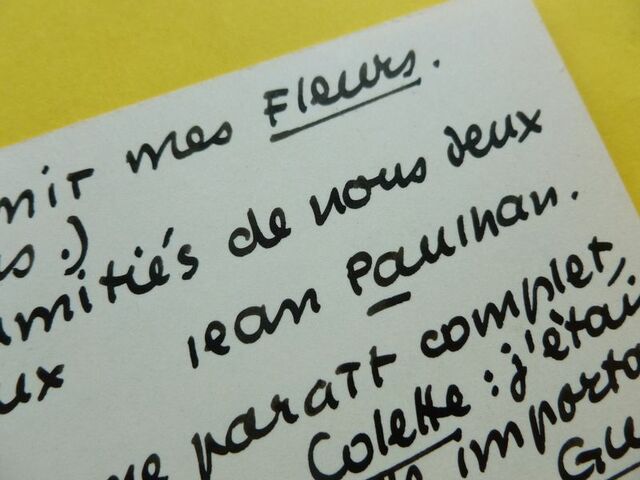 nir mes Fleurs.
s.)
amitiés de nous deux
ux Jean Paulhan.
me paraît complet,
Colette : j'étai
importa
Gu